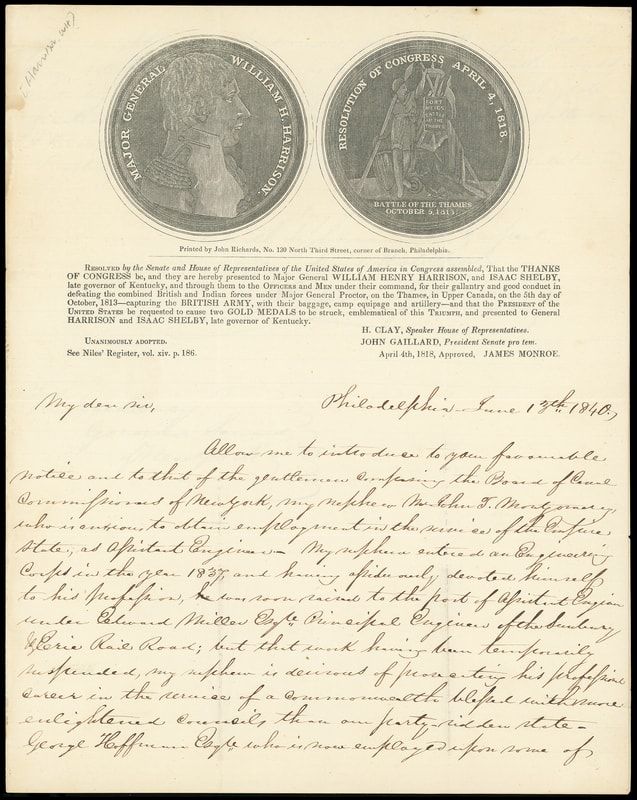 MAJOR GENERAL WILLIAM H. HARRISON.
RESOLUTION OF CONGRESS APRIL 4, 1818.
FORT
MEIGS
BATTLE
OF THE
THAMES
BATTLE OF THE THAMES
OCTOBER 5, 1813.
Printed by John Richards, No. 130 North Third Street, corner of Branch, Philadelphia.
RESOLVED by the Senate and House of Representatives of the United States of America in Congress assembled, That the THANKS
OF CONGRESS be, and they are hereby presented to Major General WILLIAM HENRY HARRISON, and ISAAC SHELBY,
late governor of Kentucky, and through them to the OFFICERS and MEN under their command, for their gallantry and good conduct in
defeating the combined British and Indian forces under Major General Proctor, on the Thames, in Upper Canada, on the 5th day of
October, 1813—capturing the BRITISH ARMY, with their baggage, camp equipage and artillery—and that the PRESIDENT OF THE
UNITED STATES be requested to cause two GOLD MEDALS to be struck, emblematical of this TRIUMPH, and presented to General
HARRISON and ISAAC SHELBY, late governor of Kentucky.
H. CLAY, Speaker House of Representatives.
UNANIMOUSLY ADOPTED.
JOHN GAILLARD, President Senate pro tem.
See Niles' Register, vol. xiv. p. 186.
April 4th, 1818, Approved, JAMES MONROE.
My dear sir,
Philadelphia June 17th 1840.
Allow me to introduce to your favourable
notice and to that of the gentlemen composing the Board of Canal
Commissioners of New York, my nephew Mr John T. Montgomery,
who is anxious to obtain employment in the service of the Empire
State, as Assistant Engineer— My nephew entered an Engineering
Corps in the year 1837, and having assiduously devoted himself
to his Profession, he was soon raised to the post of Assistant Engineer
under Edward Miller Esqre Principal Engineer of the Sunbury
& Erie Rail Road; but that work having been temporarily
suspended, my nephew is desirous of prosecuting his professional
career in the service of a commonwealth blessed with more
enlightened councils than our party-ridden state—
George Hoffman Esqre who is now employed upon some of